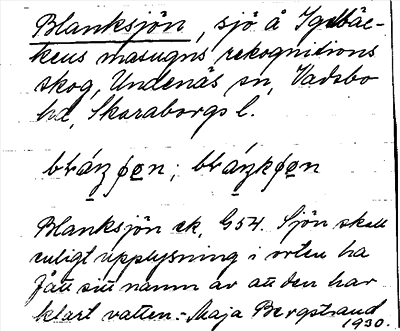 Blanksjön, sjö å Igelbäc-
kens masugns rekognitions
skog, Undenäs sn, Vadsbo
hd, Skaraborgs l.
Blanksjön ek, G54. Sjön skall
enligt upplysning i orten ha
fått sitt namn av att den har
klart vatten. - Maja Bergstrand
1930.